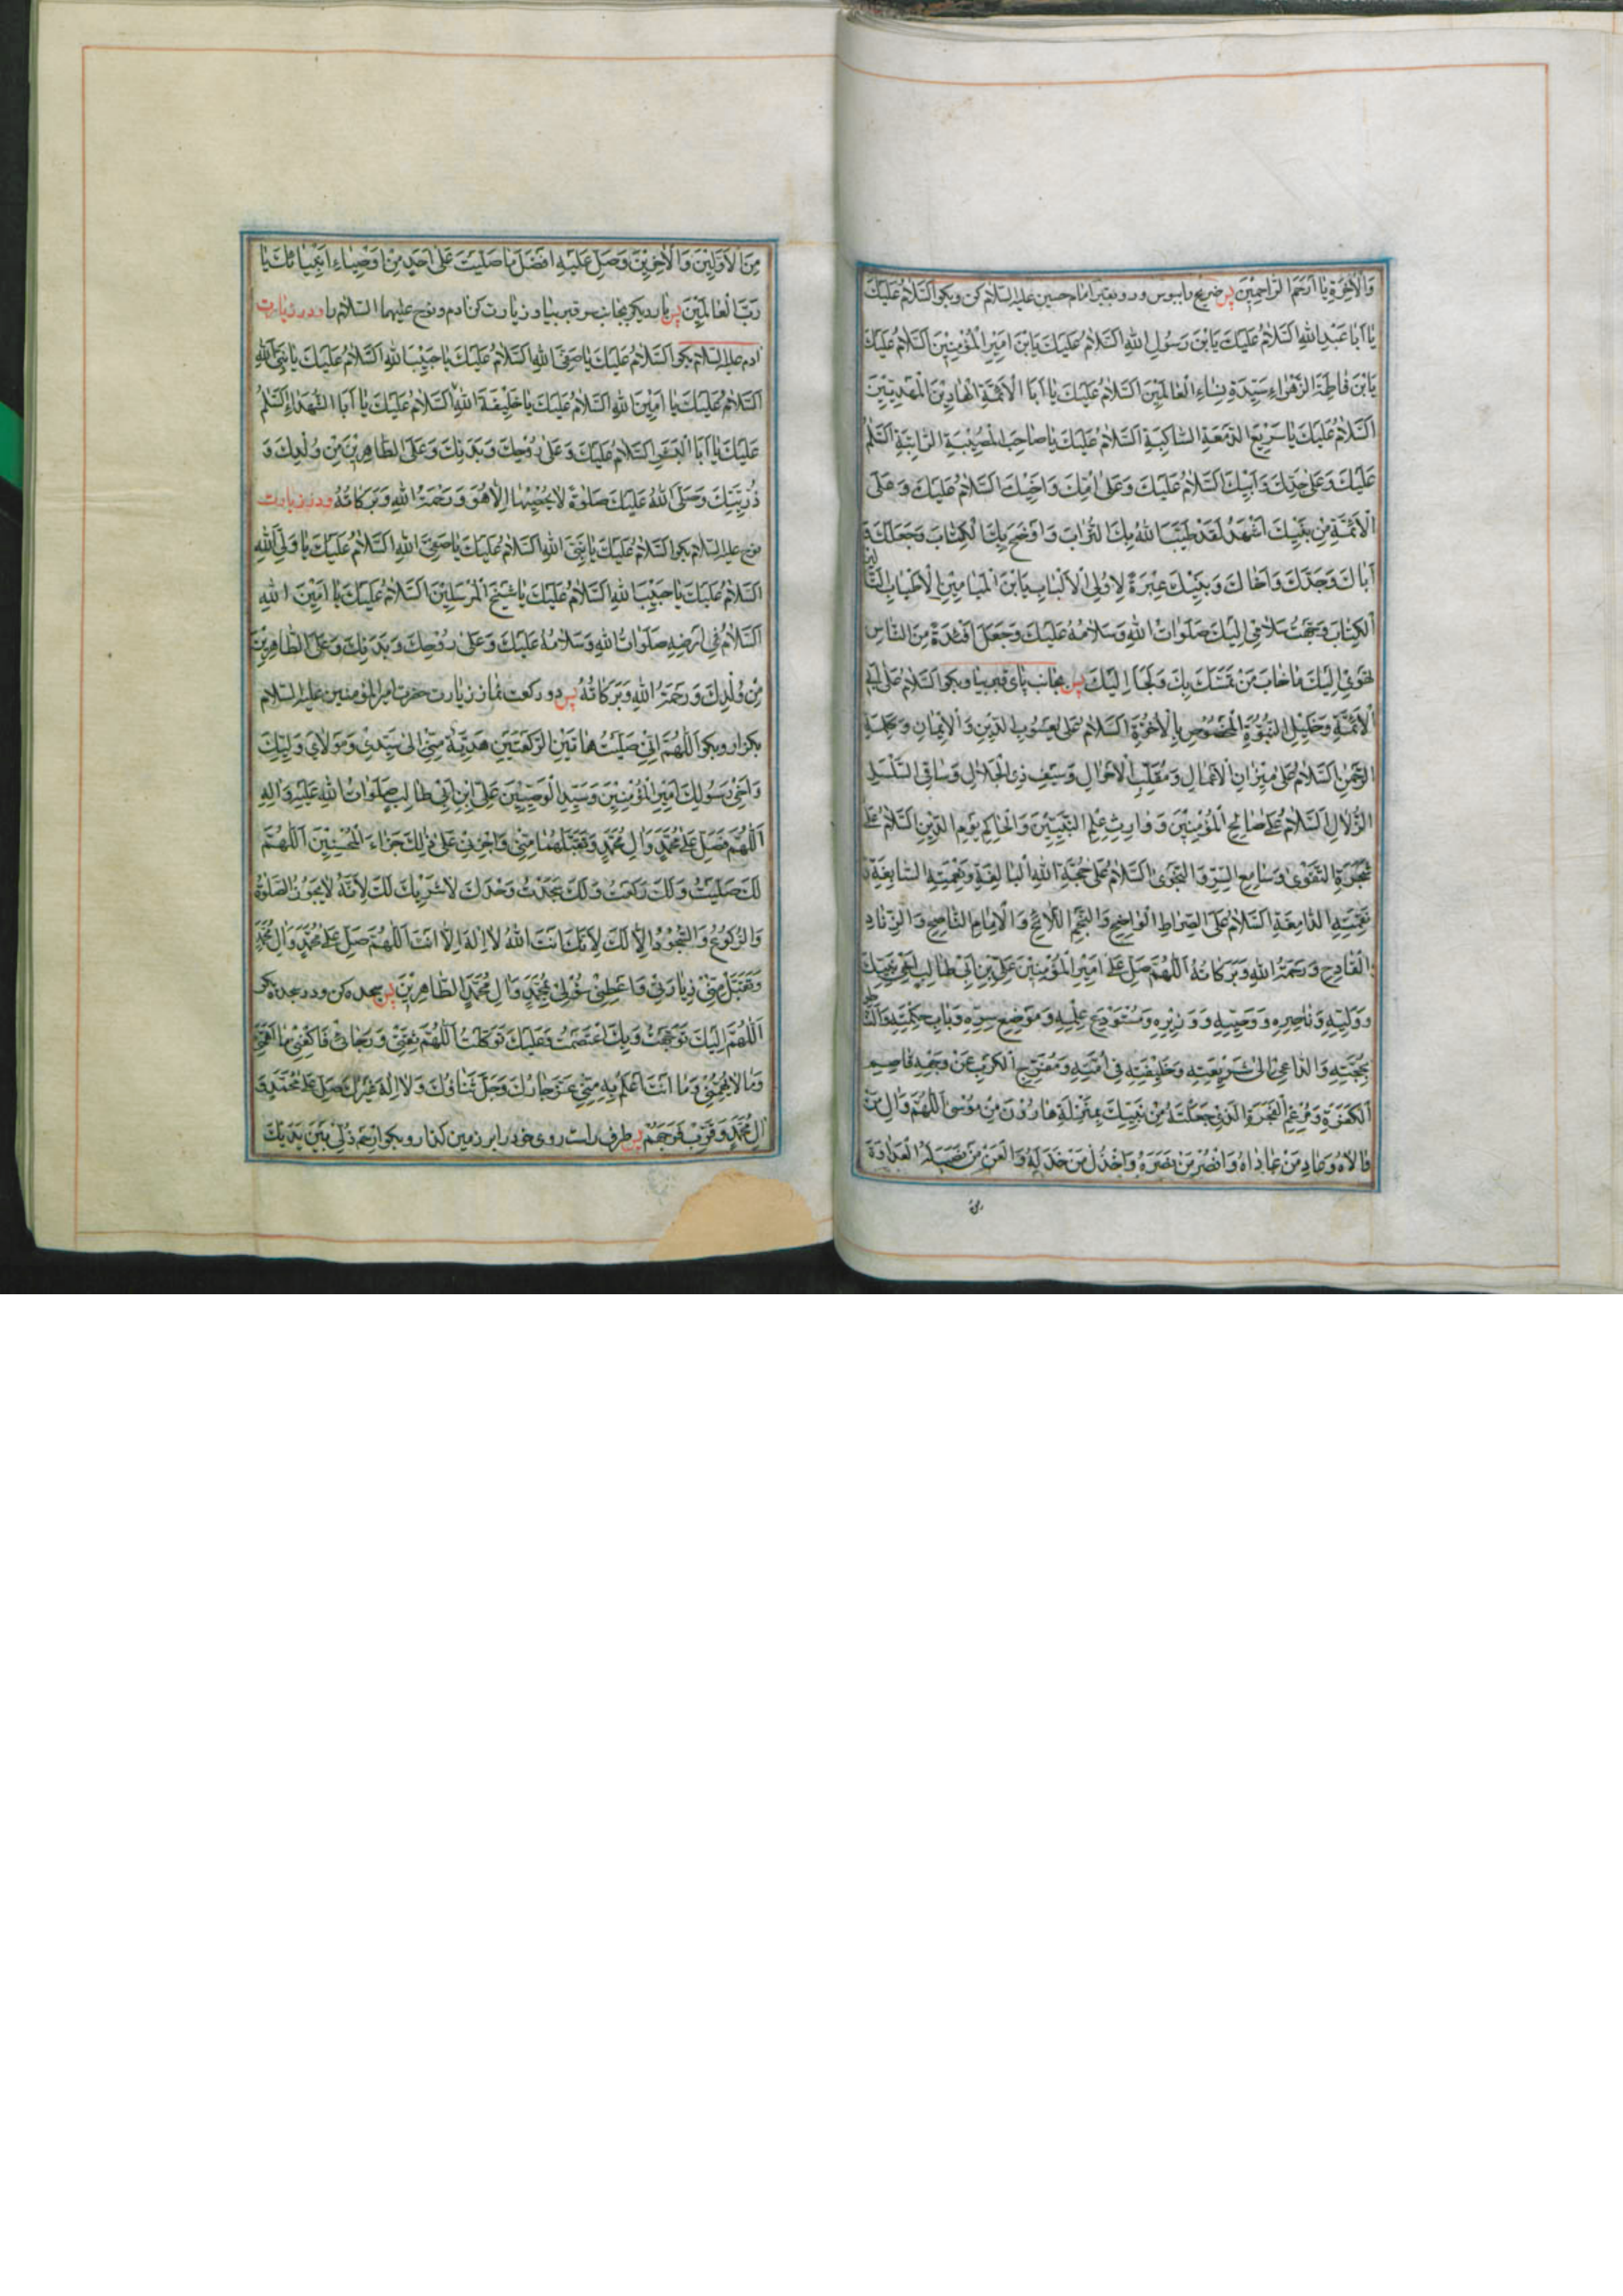 وَالْاٰخِرَةِ یٰا اَرْحَمَ الرّٰاحِمِیْنَ پس ضریح را ببوس و رو بقبر امام حسین علیه السّلام کن و بکو اَلسَّلاٰمُ عَلَیْكَ
یٰا اَبٰا عَبْدِ اللّٰهِ اَلسَّلاٰمُ عَلَیْكَ یَابْنَ رَسُوْلِ اللّٰهِ اَلسَّلاٰمُ عَلَیْكَ یَابْنَ اَمِیْرِ الْمُؤْمِنِیْنَ اَلسَّلاٰمُ عَلَیْكَ
یَابْنَ فٰاطِمَةَ الزَّهْرٰاءِ سَیِّدَةِ نِسٰاءِ الْعٰالَمِیْنَ اَلسَّلاٰمُ عَلَیْكَ یٰا اَبَا الْاَئِمَّةِ الْهٰادِیْنَ الْمَهْدِیِّیْنَ
اَلسَّلاٰمُ عَلَیْكَ یٰا صَرِیْعَ الدَّمْعَةِ السّٰاکِبَةِ اَلسَّلاٰمُ عَلَیْكَ یٰا صٰاحِبَ الْمُصِیْبَةِ الرّٰاتِبَةِ اَلسَّلٰمُ
عَلَیْكَ وَعَلٰی جَدِّكَ وَاَبِیْكَ اَلسَّلاٰمُ عَلَیْكَ وَعَلٰی اُمِّكَ وَاَخِیْكَ اَلسَّلاٰمُ عَلَیْكَ وَعَلَی
الْاَئِمَّةِ مِنْ بَنِیْكَ اَشْهَدُ لَقَدْ طَیَّبَ اللّٰهُ بِكَ التُّرٰابَ وَاَوْضَحَ بِكَ الْکِتٰابَ وَجَعَلَكَ وَ
اَبٰاكَ وَجَدَّكَ وَاَخٰاكَ وَبَنِیْكَ عِبْرَةً لِاُولِی الْاَلْبٰابِ یَابْنَ الْمَیٰامِیْنِ الْاَطْیٰابِ التّٰالِیْنَ
الْکِتٰابَ وَجَّهْتُ سَلاٰمِی اِلَیْكَ صَلَوٰاتُ اللّٰهِ وَسَلاٰمُهُ عَلَیْكَ وَجَعَلَ اَفْئِدَةً مِنَ النّٰاسِ
تَهْوِیْ اِلَیْكَ مٰا خٰابَ مَنْ تَمَسَّكَ بِكَ وَلَجَاَ اِلَیْكَ پس بجانب پای قبر بیا و بکو اَلسَّلاٰمُ عَلٰی اَبِی
الْاَئِمَّةِ وَخَلِیْلِ النُّبُوَّةِ الْمَخْصُوْصِ بِالْاُخُوَّةِ اَلسَّلاٰمُ عَلٰی یَعْسُوْبِ الدِّیْنِ وَالْاِیْمٰانِ وَکَلِمَةِ
الرَّحْمٰنِ اَلسَّلاٰمُ عَلٰی مِیْزٰانِ الْاَعْمٰالِ وَمُقَلِّبِ الْاَحْوٰالِ وَسَیْفِ ذِی الْجَلاٰلِ وَسٰاقِی السَّلْسَبِیْلِ
الزُّلاٰلِ اَلسَّلاٰمُ عَلٰی صٰالِحِ الْمُؤْمِنِیْنَ وَوٰارِثِ عِلْمِ النَّبِیِّیْنَ وَالْحٰاکِمِ یَوْمَ الدِّیْنِ اَلسَّلاٰمُ عَلٰی
شَجَرَةِ التَّقْوٰی وَسٰامِعِ السِّرِّ وَالنَّجْوٰی اَلسَّلاٰمُ عَلٰی حُجَّةِ اللّٰهِ الْبٰالِغَةِ وَنِعْمَتِهِ السّٰابِغَةِ وَ
نِقْمَتِهِ الدّٰامِغَةِ اَلسَّلاٰمُ عَلَی الصِّرٰاطِ الْوٰاضِحِ وَالنَّجْمِ اللاّٰئِحِ وَالْاِمٰامِ النّٰاصِحِ وَالزِّنٰادِ
الْقٰادِحِ وَرَحْمَةُ اللّٰهِ وَبَرَکٰاتُهُ اَللّٰهُمَّ صَلِّ عَلٰی اَمِیْرِ الْمُؤْمِنِیْنَ عَلِیِّ بْنِ اَبِیْ طٰالِبٍ اَخِیْ نَبِیِّكَ
وَوَلِیِّهِ وَنٰاصِرِهِ وَوَصِیِّهِ وَوَزِیْرِهِ وَمُسْتَوْدَعِ عِلْمِهِ وَمَوْضِعِ سِرِّهِ وَبٰابِ حِکْمَتِهِ وَالنّٰاطِقِ
بِحُجَّتِهِ وَالدّٰاعِیْ اِلٰی شَرِیْعَتِهِ وَخَلِیْفَتِهِ فِیْ اُمَّتِهِ وَمُفَرِّجِ الْکَرْبِ عَنْ وَجْهِهِ قٰاصِمِ
الْکَفَرَةِ وَمُرْغِمِ الْفَجَرَةِ الَّذِیْ جَعَلْتَهُ مِنْ نَبِیِّكَ بِمَنْزِلَةِ هٰارُوْنَ مِنْ مُوْسٰی اَللّٰهُمَّ وَالِ مَنْ
وٰالاٰهُ وَعٰادِ مَنْ عٰادٰاهُ وَانْصُرْ مَنْ نَصَرَهُ وَاخْذُلْ مَنْ خَذَلَهُ وَالْعَنْ مَنْ نَصَبَ لَهُ الْعَدٰاوَةَ
مِنَ الْاَوَّلِیْنَ وَالْاٰخِرِیْنَ وَصَلِّ عَلَیْهِ اَفْضَلَ مٰا صَلَّیْتَ عَلٰی اَحَدٍ مِنْ اَوْصِیٰاءِ اَنْبِیٰائِكَ یٰا
رَبَّ الْعٰالَمِیْنَ پس بار دیکر بجانب سر قبر بیا و زیارت کن ادم و نوح علیهما السّلام را و در زیارت
ادم علیه السّلام بکو اَلسَّلاٰمُ عَلَیْكَ یٰا صَفِیَّ اللّٰهِ اَلسَّلاٰمُ عَلَیْكَ یٰا حَبِیْبَ اللّٰهِ اَلسَّلاٰمُ عَلَیْكَ یٰا نَبِیَّ اللّٰهِ
اَلسَّلاٰمُ عَلَیْكَ یٰا اَمِیْنَ اللّٰهِ اَلسَّلاٰمُ عَلَیْكَ یٰا خَلِیْفَةَ اللّٰهِ اَلسَّلاٰمُ عَلَیْكَ یٰا اَبَا الشُّهَدٰاءِ اَلسَّلٰمُ
عَلَیْكَ یٰا اَبَا الْبَشَرِ اَلسَّلاٰمُ عَلَیْكَ وَعَلٰی رُوْحِكَ وَبَدَنِكَ وَعَلَی الطّٰاهِرِیْنَ مِنْ وُلْدِكَ وَ
ذُرِّیَّتِكَ وَصَلَّی اللّٰهُ عَلَیْكَ صَلٰوةً لاٰ یُحْصِیْهٰا اِلاّٰ هُوَ وَرَحْمَةُ اللّٰهِ وَبَرَکٰاتُهُ و در زیارت
نوح علیه السّلام بکو اَلسَّلاٰمُ عَلَیْكَ یٰا نَبِیَّ اللّٰهِ اَلسَّلاٰمُ عَلَیْكَ یٰا صَفِیَّ اللّٰهِ اَلسَّلاٰمُ عَلَیْكَ یٰا وَلِیَّ اللّٰهِ
اَلسَّلاٰمُ عَلَیْكَ یٰا حَبِیْبَ اللّٰهِ اَلسَّلاٰمُ عَلَیْكَ یٰا شَیْخَ الْمُرْسَلِیْنَ اَلسَّلاٰمُ عَلَیْكَ یٰا اَمِیْنَ اللّٰهِ
اَلسَّلاٰمُ فِیْ اَرْضِهِ صَلَوٰاتُ اللّٰهِ وَسَلاٰمُهُ عَلَیْكَ وَعَلٰی رُوْحِكَ وَبَدَنِكَ وَعَلَی الطّٰاهِرِیْنَ
مِنْ وُلْدِكَ وَرَحْمَةُ اللّٰهِ وَبَرَکٰاتُهُ پس دو رکعت نماز زیارت حضرت امیر المؤمنین علیه السّلام
بکزار و بکو اَللّٰهُمَّ اِنِّیْ صَلَّیْتُ هٰاتَیْنِ الرَّکْعَتَیْنِ هَدِیَّةً مِنِّیْ اِلٰی سَیِّدِیْ وَمَوْلاٰیَ وَلِیِّكَ
وَاَخِیْ رَسُوْلِكَ اَمِیْرِ الْمُؤْمِنِیْنَ وَسَیِّدِ الْوَصِیِّیْنَ عَلِیِّ ابْنِ اَبِیْ طٰالِبٍ صَلَوٰاتُ اللّٰهِ عَلَیْهِ وَاٰلِهِ
اَللّٰهُمَّ فَصَلِّ عَلٰی مُحَمَّدٍ وَاٰلِ مُحَمَّدٍ وَتَقَبَّلْهُمٰا مِنِّیْ وَاجْزِنِیْ عَلٰی ذٰلِكَ جَزٰاءَ الْمُحْسِنِیْنَ اَللّٰهُمَّ
لَكَ صَلَّیْتُ وَلَكَ رَکَعْتُ وَلَكَ سَجَدْتُ وَحْدَكَ لاٰ شَرِیْكَ لَكَ لِاَنَّهُ لاٰ یَجُوْزُ الصَّلٰوةُ
وَالرُّکُوْعُ وَالسُّجُوْدُ اِلاّٰ لَكَ لِاَنَّكَ اَنْتَ اللّٰهُ لاٰ اِلٰهَ اِلاّٰ اَنْتَ اَللّٰهُمَّ صَلِّ عَلٰی مُحَمَّدٍ وَاٰلِ مُحَمَّدٍ
وَتَقَبَّلْ مِنِّیْ زِیٰارَتِیْ وَاَعْطِنِیْ سُؤْلِیْ بِمُحَمَّدٍ وَاٰلِ مُحَمَّدٍ الطّٰاهِرِیْنَ پس سجده کن و در سجده بکو
اَللّٰهُمَّ اِلَیْكَ تَوَجَّهْتُ وَبِكَ اعْتَصَمْتُ وَعَلَیْكَ تَوَکَّلْتُ اَللّٰهُمَّ ثِقَتِیْ وَرَجٰائِیْ فَاکْفِنِیْ مٰا اَهَمَّنِیْ
وَمٰا لاٰ یُهِمُّنِیْ وَمٰا اَنْتَ اَعْلَمُ بِهِ مِنِّیْ عَزَّ جٰارُكَ وَجَلَّ ثَنٰاؤُكَ وَلاٰ اِلٰهَ غَیْرُكَ صَلِّ عَلٰی مُحَمَّدٍ وَ
اٰلِ مُحَمَّدٍ وَقَرِّبْ فَرَجَهُمْ پس طرف راست روی خود را بر زمین کذار و بکو اِرْحَمْ ذُلِّیْ بَیْنَ یَدَیْكَ